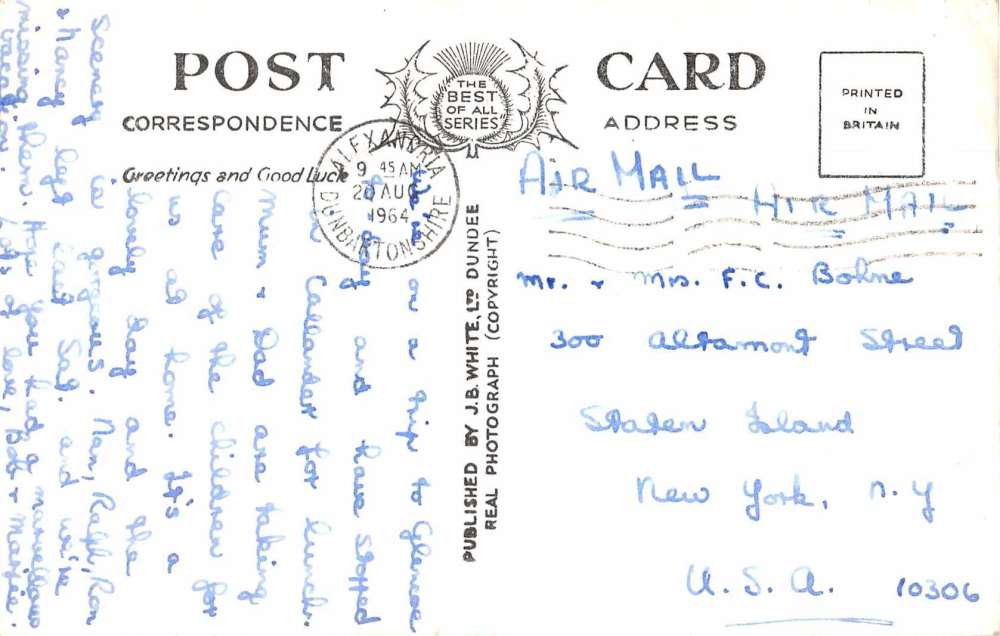 POST CARD
THE
BEST
OF ALL
SERIES
CORRESPONDENCE
ADDRESS
PRINTED
IN
BRITAIN
Greetings and Good Luck
ALEXANDRIA
9 45 AM
20 AUG
1964
DUNBARTONSHIRE
on a trip to Glencoe
to-day and have stopped
in Callander for lunch.
Mum & Dad are taking
care of the children for
us at home. It's a
lovely day and the
scenery is gorgeous. Nan, Ralph, Ron
& Nancy left last Sat. and we're
missing them. Hope you had a marvellous
vacation. Lots of love, Bob & Mattie.
PUBLISHED BY J.B. WHITE, LTD DUNDEE
REAL PHOTOGRAPH (COPYRIGHT)
AIR MAIL
AIR MAIL
Mr. & Mrs. F.C. Bohne
300 Altamont Street
Staten Island
New York, N.Y
U.S.A. 10306